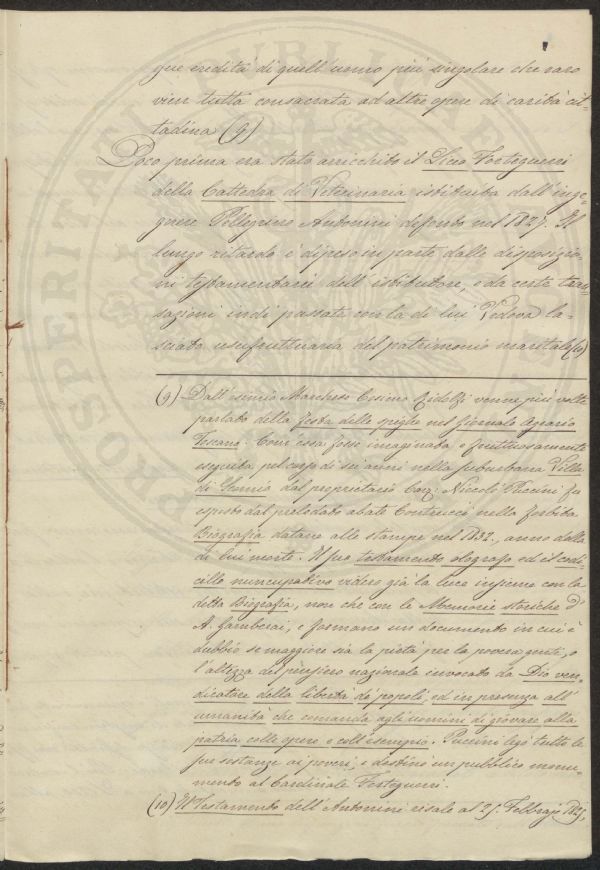 PROSPERITATI PUBLICAE
que eredità di quell' uomo più singolare che raro
vien tutta consacrata ad altre opere di carità cit-
tadina (9)
Poco prima era stato arricchito il Liceo Forteguerri
della Cattedra di Veterinaria istituita dall' inge-
gnere Pellegrino Antonini defonto nel 182 . Il
lungo ritardo è dipeso in parte dalle disposizio-
ni testamentarie dell' istitutore, e da certe tran-
sazioni indi passate con la di lui Vedova la-
sciata usufruttuaria del patrimonio maritale (10)
(9) Dall' esimio Marchese Cosimo Ridolfi venne più volte
parlato della festa delle spighe nel Giornale Agrario
Toscano. Com' essa fosse imaginata e fruttuosamente
eseguita pel corso di sei anni nella suburbana Villa
di Scornio dal proprietario Cav: Niccolò Puccini fu
esposto dal prelodato abate Contrucci nella forbita
Biografia datane alle stampe nel 1852., anno dalla
di lui morte. Il suo testamento olografo ed il codi-
cillo nuncupativo videro già la luce insieme con la
detta Biografia, non che con le Memorie storiche d'
A. Gamberai, e formano un documento in cui è
dubbio se maggiore sia la pietà per la povera gente, o
l' altezza del pensiero nazionale invocato da Dio ven-
dicatore della libertà de' popoli, ed in presenza all'
umanità che comanda agli uomini di giovare alla
patria colle opere e coll' esempio. Puccini legò tutte le
sue sostanze ai poveri, e destinò un pubblico monu-
mento al Cardinale Forteguerri.
(10) Il Testamento dell' Antonini risale al 25. Febbrajo